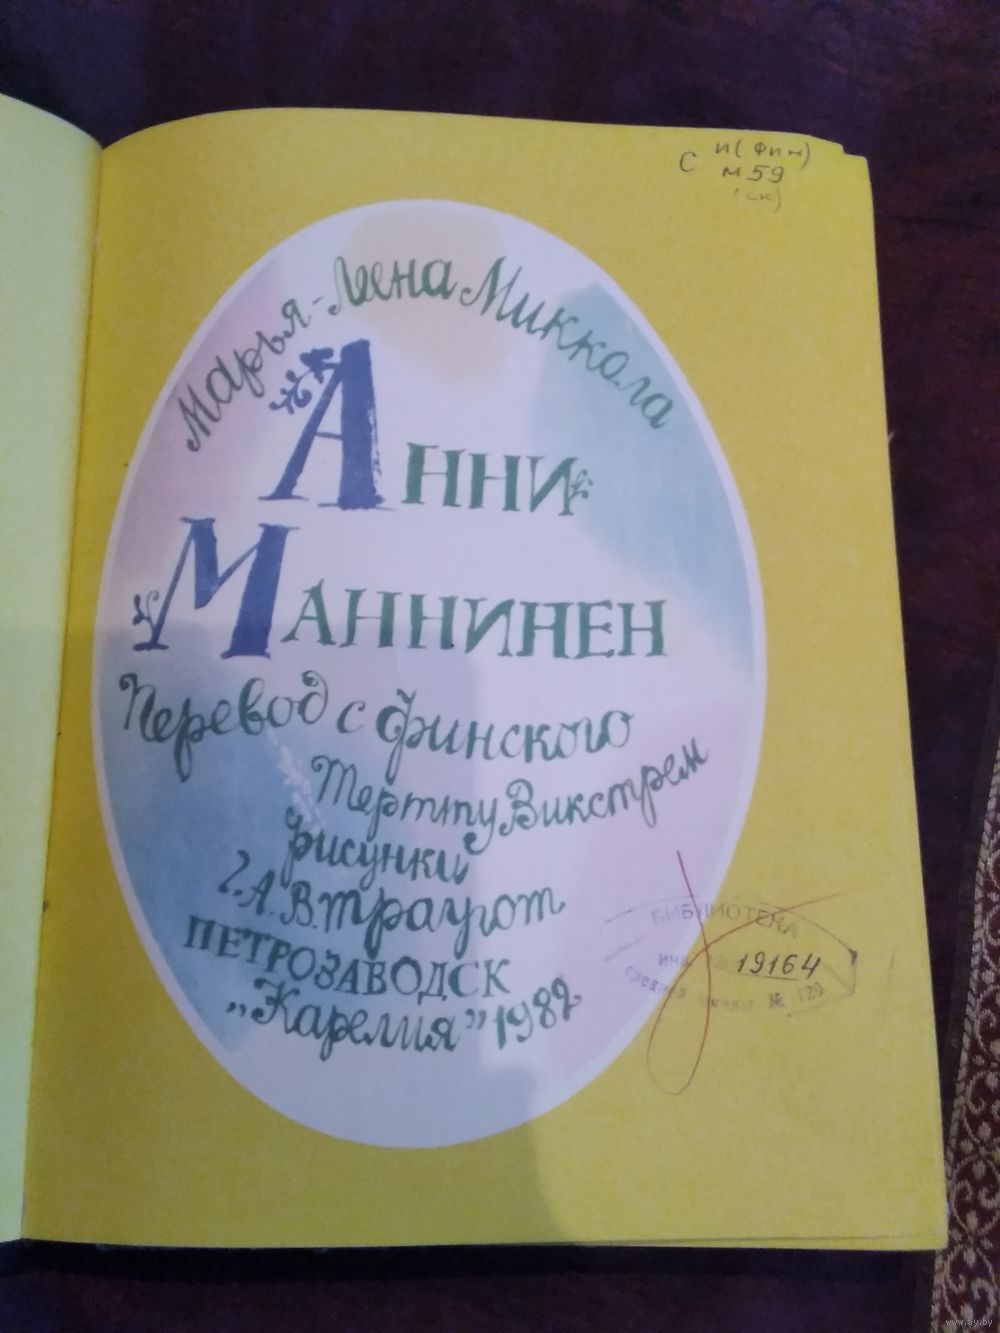 С И(Фин)
М59
(ск)
Марья-Леена Миккола
АННИ
МАННИНЕН
Перевод с финского
Тертту Викстрем
рисунки
Г.А.В.Траугот
ПЕТРОЗАВОДСК
„Карелия” 1982
БИБЛИОТЕКА
инв. № 19164
средней школы № 129
www.ay.by